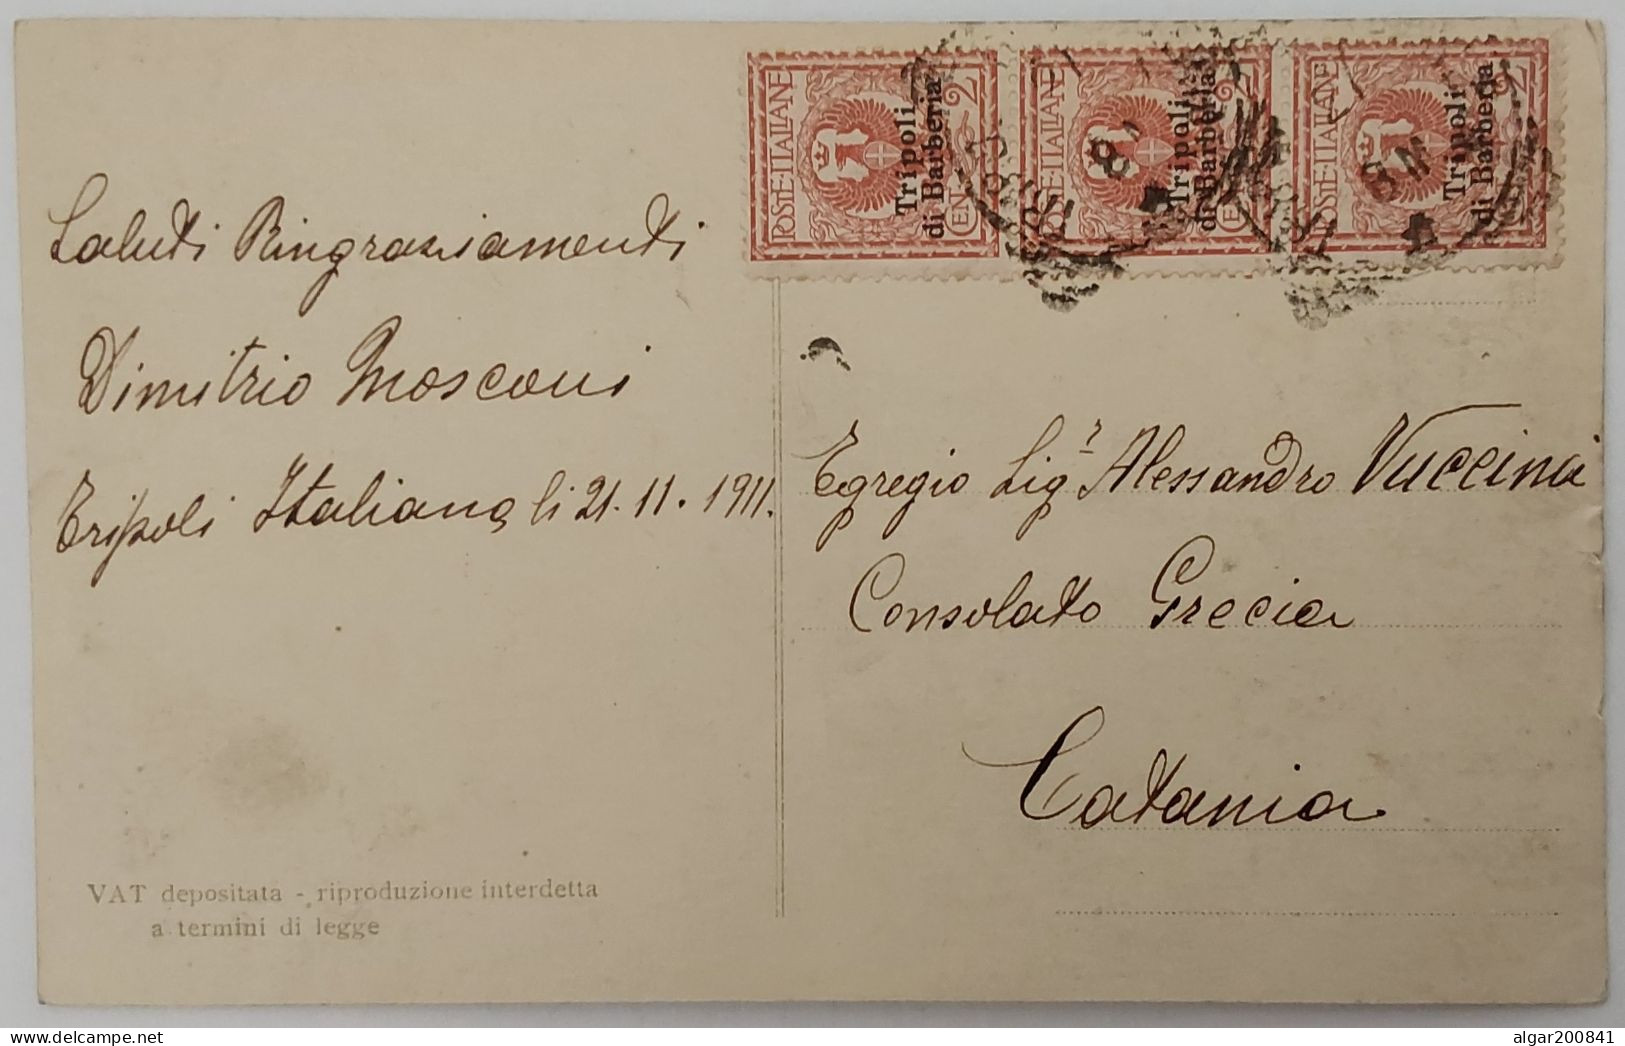 Saluti Ringraziamenti
Dimitrio Mosconi
Tripoli Italiana, li 21.11.1911.
VAT depositata - riproduzione interdetta
a termini di legge
POSTE·ITALIANE CENT 2
Tripoli
di Barberia
POSTE·ITALIANE CENT
Tripoli
di Barberia
POSTE·ITALIANE 2
Tripoli
di Barberia
Egregio Sigr Alessandro Vuccina
Consolato Grecia
Catania
algar200841